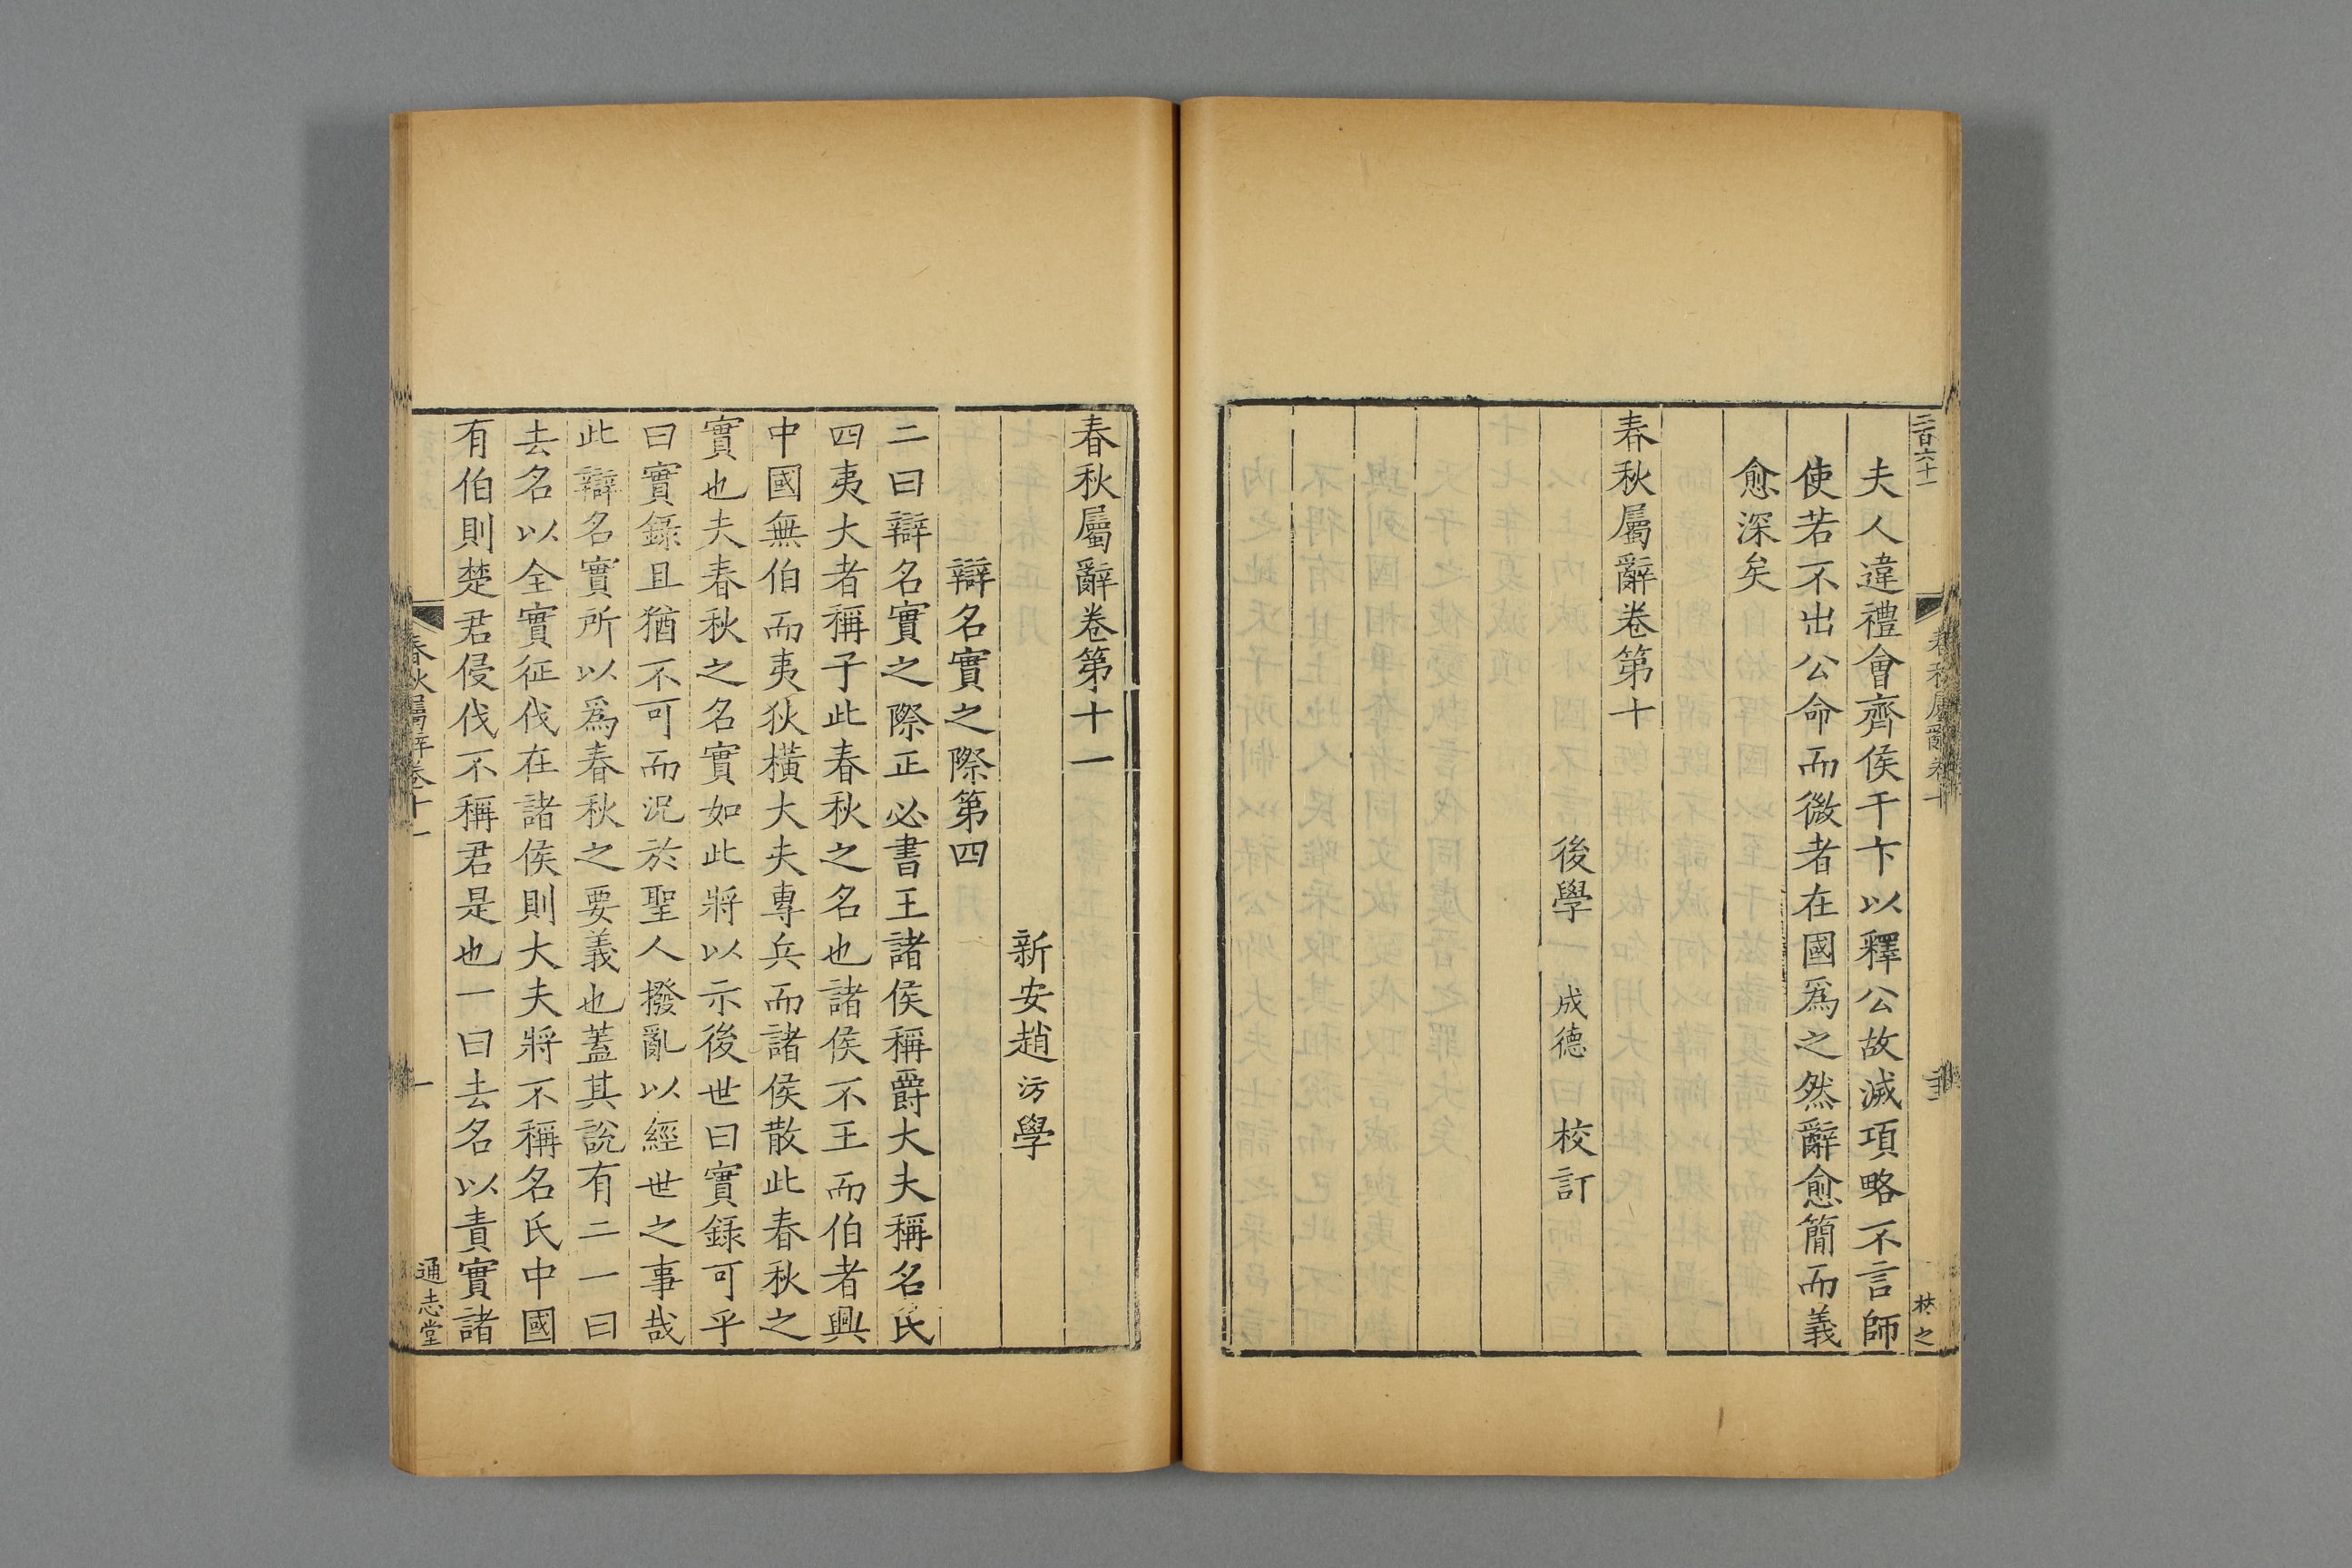 三百六十一
春秋屬辭卷十
夫人違禮會齊侯于卞以釋公故滅項略不言師
使若不出公命而微者在國爲之然辭愈簡而義
愈深矣
春秋屬辭卷第十
後學 成德 校訂
春秋屬辭卷第十一
新安趙汸學
辯名實之際第四
二曰辯名實之際正必書王諸侯稱爵大夫稱名氏
四夷大者稱子此春秋之名也諸侯不王而伯者興
中國無伯而夷狄橫大夫專兵而諸侯散此春秋之
實也夫春秋之名實如此將以示後世曰實錄可乎
曰實錄且猶不可而況於聖人撥亂以經世之事哉
此辯名實所以爲春秋之要義也蓋其說有二一曰
去名以全實征伐在諸侯則大夫將不稱名氏中國
有伯則楚君侵伐不稱君是也一曰去名以責實諸
春秋屬辭卷十一
一
通志堂